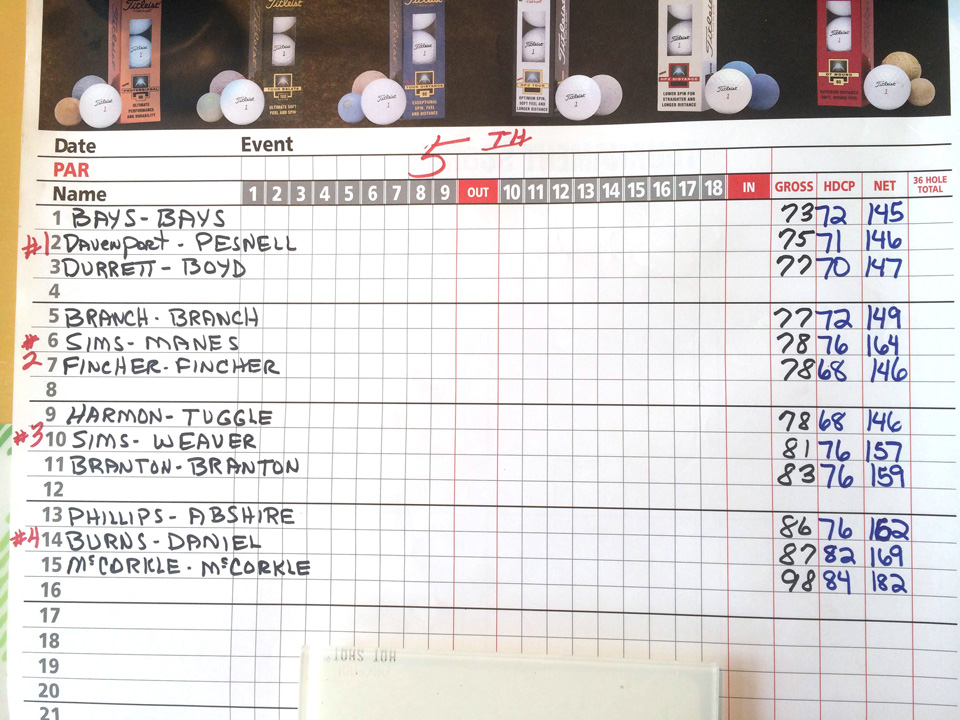 Titleist Titleist Titleist Titleist Titleist Titleist
ULTIMATE PERFORMANCE AND DURABILITY
ULTIMATE SOFT FEEL AND SPIN
EXCEPTIONAL SPIN, FEEL AND DISTANCE
OPTIMUM SPIN, SOFT FEEL AND LONGER DISTANCE
LOWER SPIN FOR STRAIGHTER AND LONGER DISTANCE
Date Event
5TH
PAR
Name 1 2 3 4 5 6 7 8 9 OUT 10 11 12 13 14 15 16 17 18 IN GROSS HDCP NET 36 HOLE TOTAL
1 BAYS - BAYS 73 72 145
#1 2 DAVENPORT - PESNELL 75 71 146
3 DURRETT - BOYD 77 70 147
4
5 BRANCH - BRANCH 77 72 149
# 6 SIMS - MANES 78 76 164
2 7 FINCHER - FINCHER 78 68 146
8
9 HARMON - TUGGLE 78 68 146
#3 10 SIMS - WEAVER 81 76 157
11 BRANTON - BRANTON 83 76 159
12
13 PHILLIPS - ABSHIRE 86 76 162
#4 14 BURNS - DANIEL 87 82 169
15 McCORKLE - McCORKLE 98 84 182
16
17
18
19
20
21
HOT SHOT